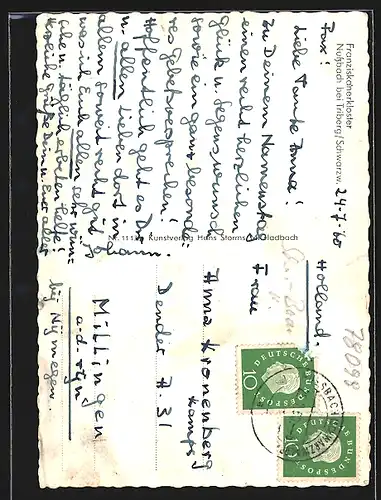 Franziskanerkloster
Nußbach bei Triberg/Schwarzw.
24-7-60
Pax!
Liebe Tante Anna!
Zu Deinem Namenstag
einen recht herzlichen
Glück u. Segenswunsch
sowie ein ganz besonde-
res Gebetsversprechen!
Hoffentlich geht es Dir
u. allen Lieben dort im
allem soweit recht gut,
was ich Euch allen sehr wün-
sche u. täglich erbeten helfe!
Deinen
Kunstverlag Hans Storms, Gladbach
Holland.
Frau
Anna Kronenberg
Kamps
Dender A. 31
Millingen
a-d-Rijn
bij Nijmegen.
78098
DEUTSCHE BUNDESPOST
10
DEUTSCHE BUNDESPOST
10